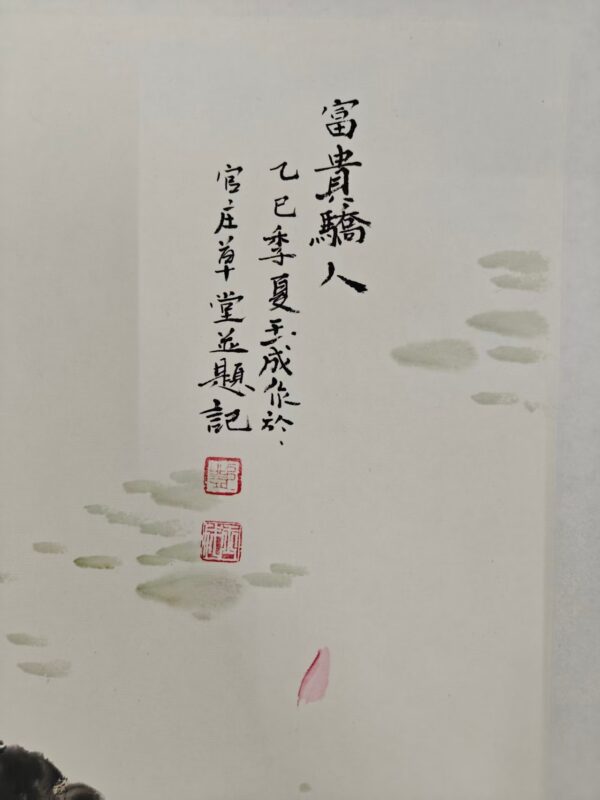 富貴驕人
乙巳季夏玉成作於
官庄草堂並題記